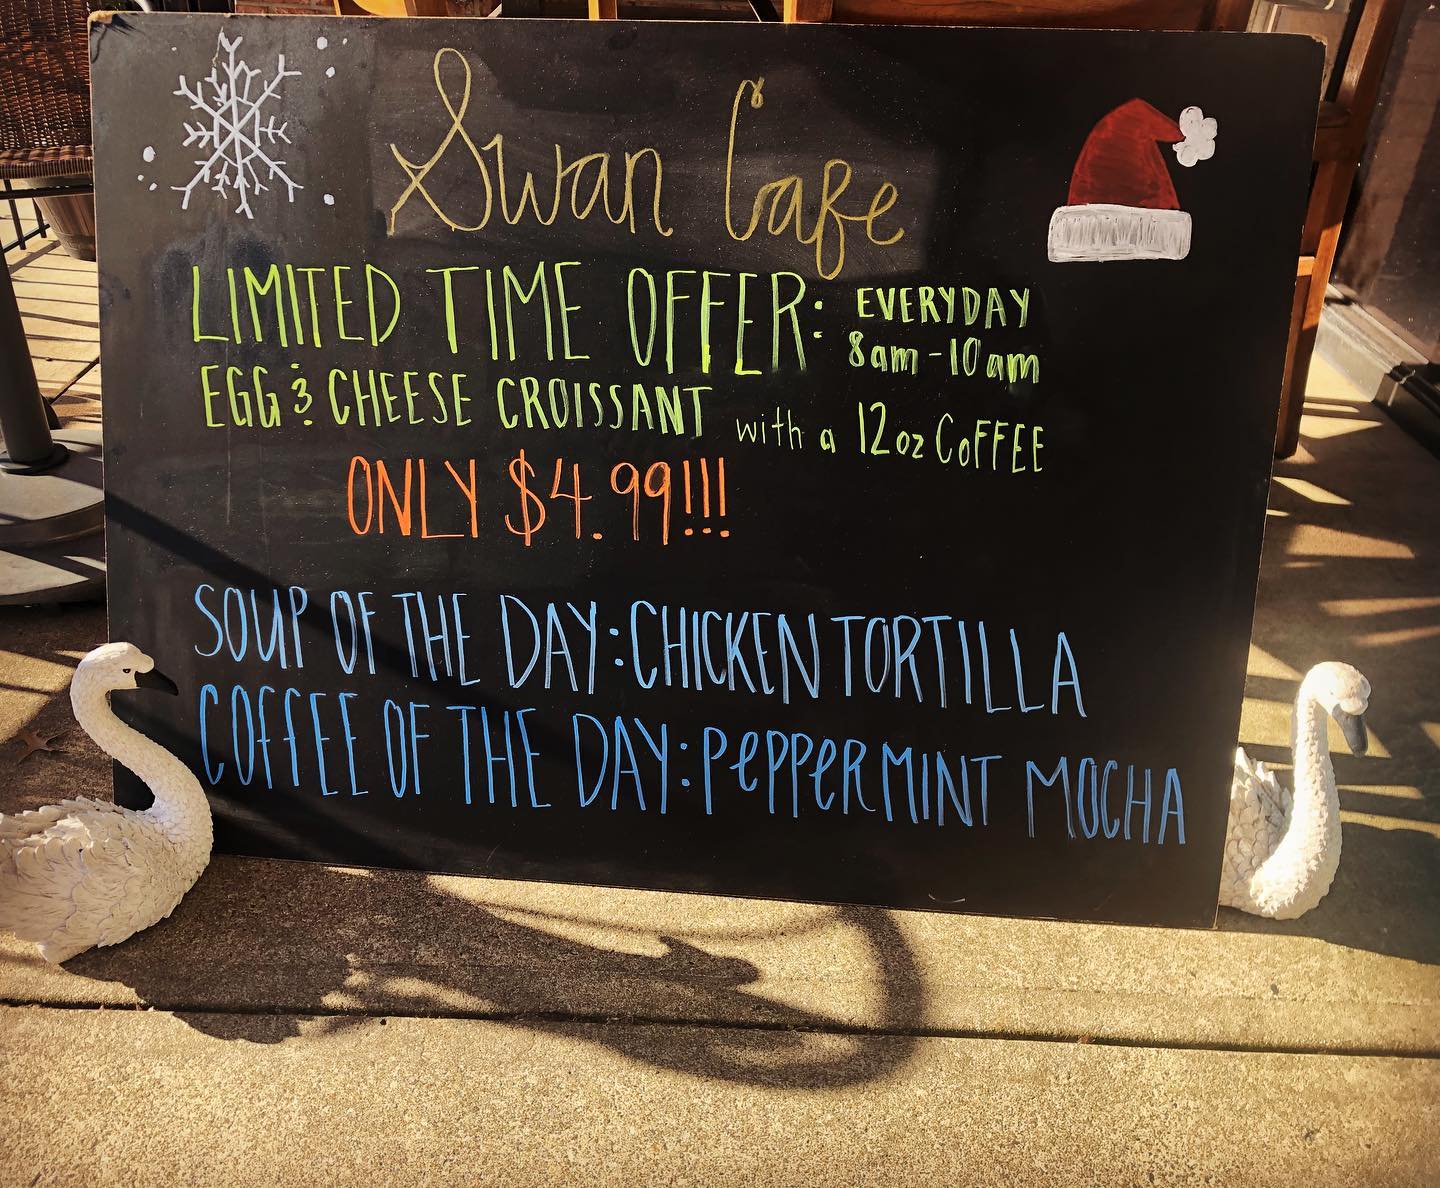 Swan Cafe
LIMITED TIME OFFER: EVERYDAY
8am - 10am
EGG & CHEESE CROISSANT with a 12oz COFFEE
ONLY $4.99!!!
SOUP OF THE DAY: CHICKEN TORTILLA
COFFEE OF THE DAY: PEPPERMINT MOCHA